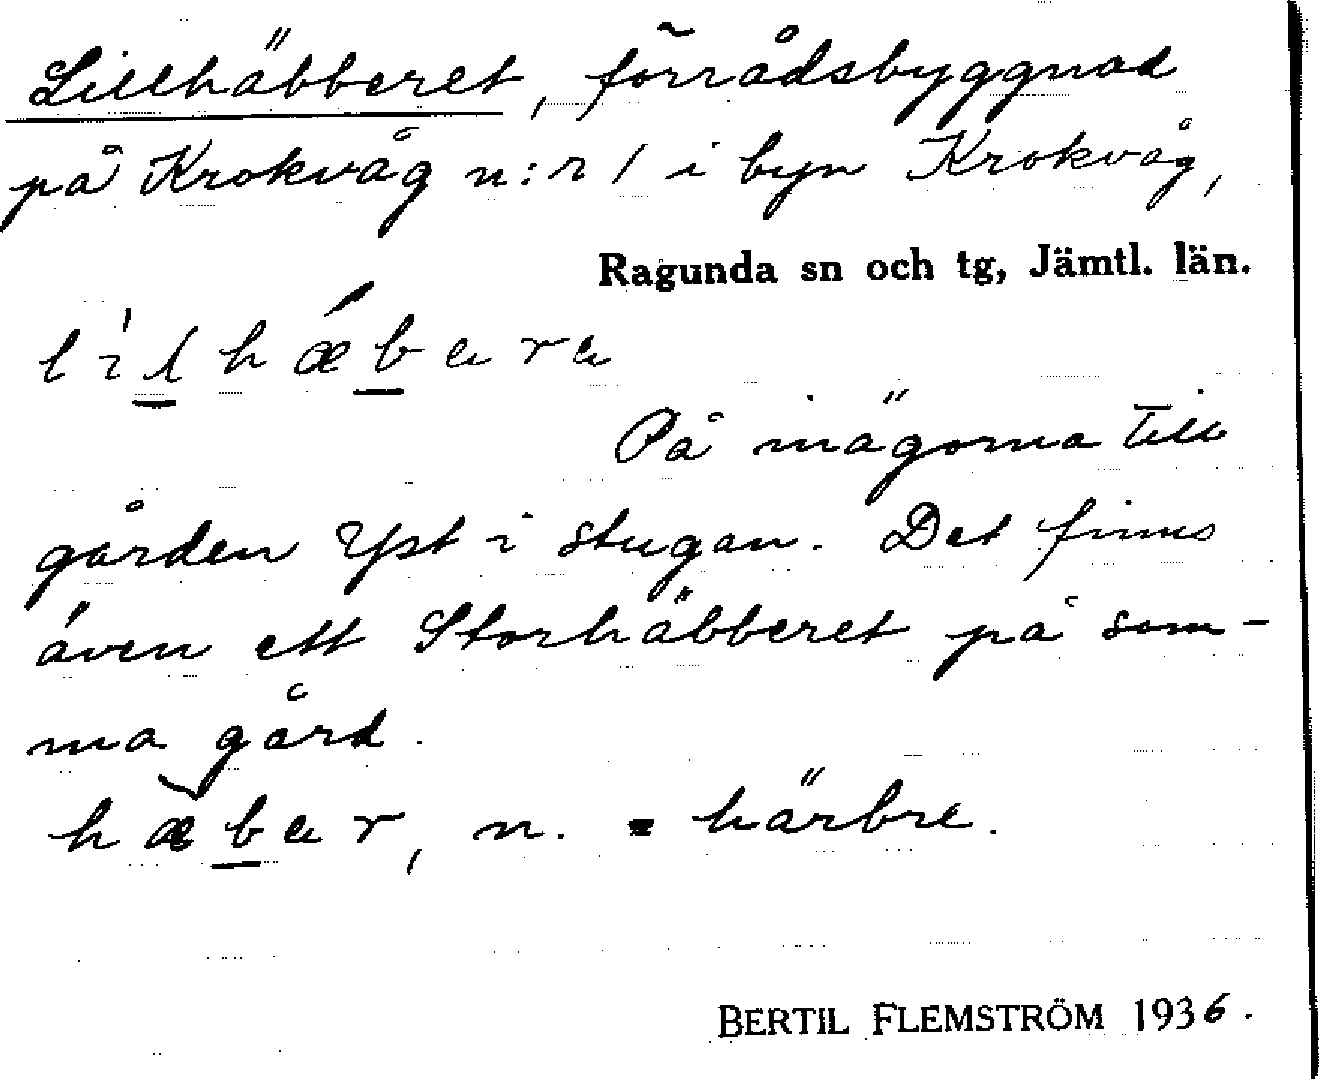 Lillhäbberet, förrådsbyggnad
på Krokvåg n:r 1 i byn Krokvåg,
Ragunda sn och tg, Jämtl. län.
På inägorna till
gården Yst i stugan. Det finns
även ett Storhäbberet på sam-
ma gård.
hæ̀bar, n. = härbre.
BERTIL FLEMSTRÖM 1936.